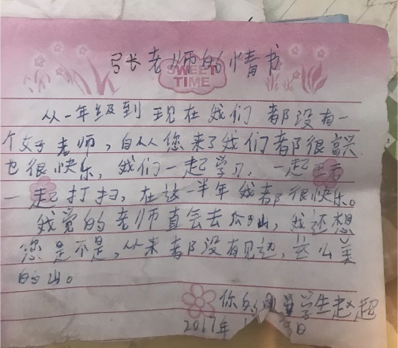 弓长老师的情书
SWEET
TIME
从一年级到现在我们都没有一
个好老师,自从您来了我们都很高兴
也很快乐,我们一起学习,一起
一起打扫,在这一半年我都很快乐。
我觉的老师直会去瓜子山,我还想
您是不是,从来都没有见边,这么美
的山。
你的学生赵起
2017年 日